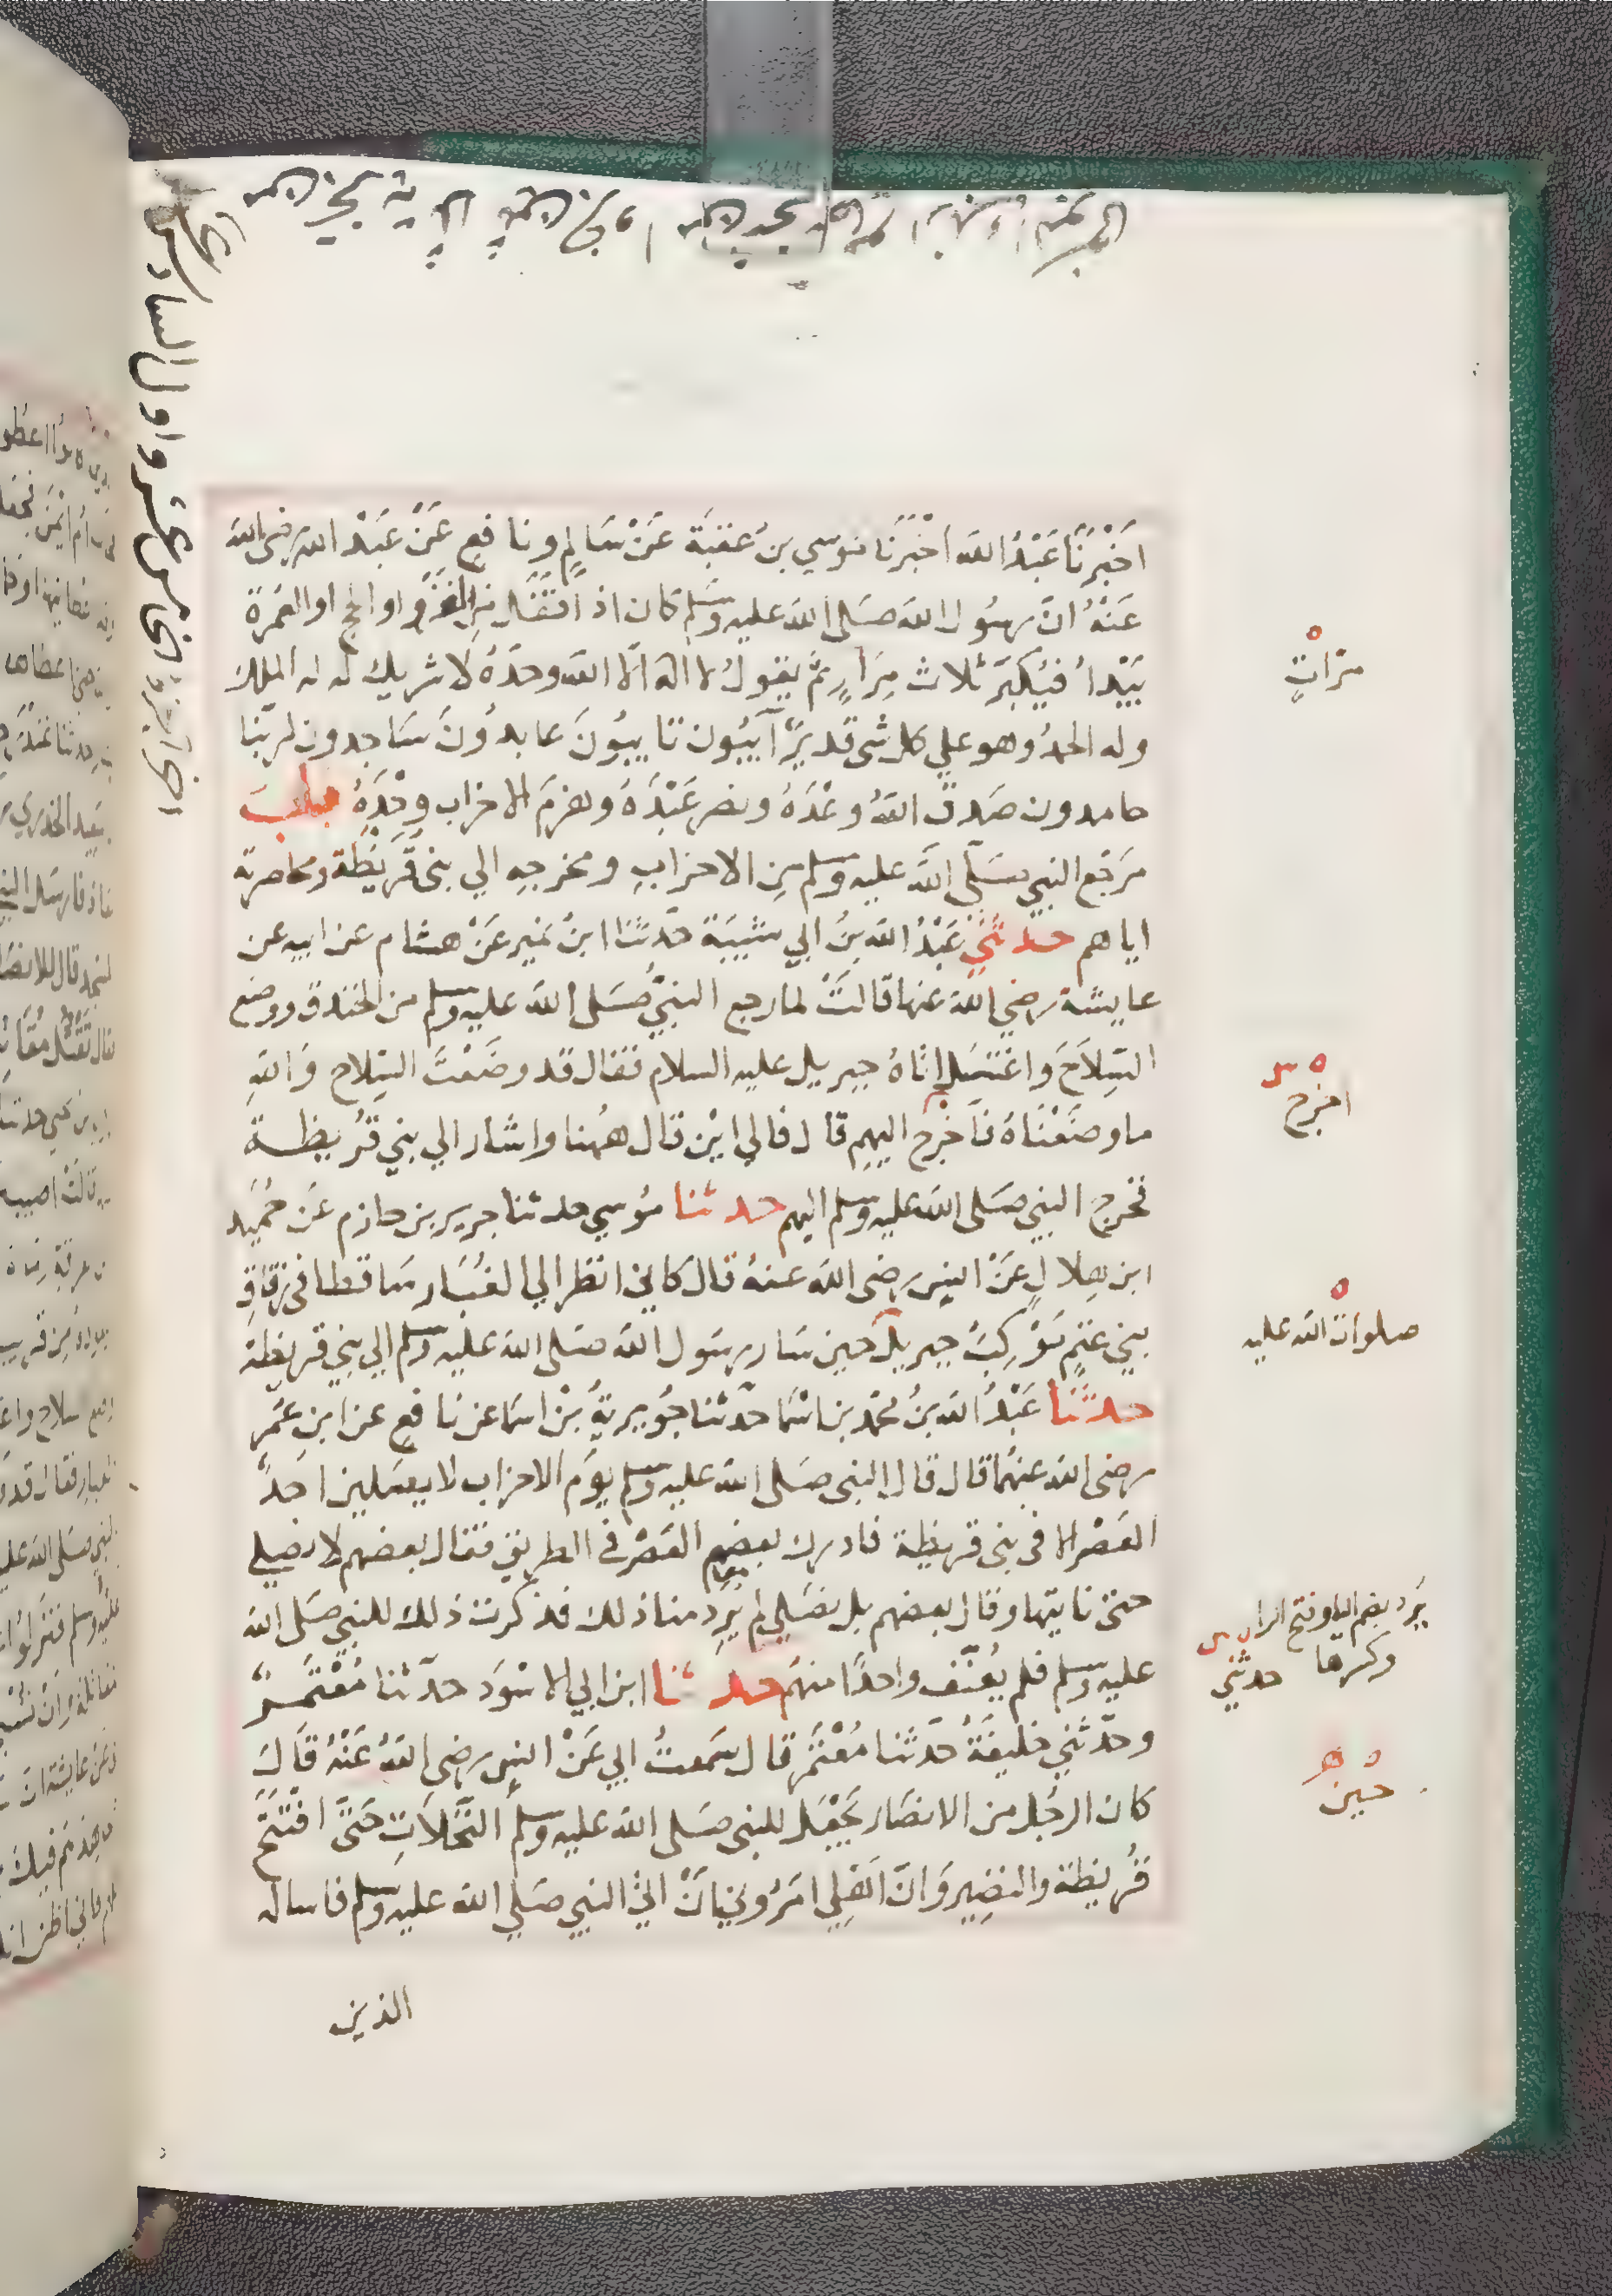 اخْبَرَنَا عَبْدُ الله اخْبَرَنَا موسي بن عُقبَة عَنْ سَالِمٍ ونافعٍ عَنْ عَبْد الله رضي الله
عَنْهُ انَّ رسُول الله صَلى الله عليه وسَلم كان اذا قَفَل مِنَ الغَزْوِ او الحج او العُمرة
يَبْدأ فيُكَبّرَ ثلاث مِرَارٍ ثم يقول لا اله الا الله وحدَهُ لا شريك له له الملك
وله الحمدُ وهو علي كل شي قديرٌ آيبُون تايبُونَ عابدُونَ سَاجدون لربّنا
حامدون صَدق اللهُ وعْدَهُ ونصر عَبْدَهُ وهزمَ الاحزاب وحْدَهُ باب
مَرجَع النبي صَلّى الله عليه وسلم مِن الاحزابِ ومخرجِهِ الي بني قُرَيْظَة ومحاصرته
اياهم حدثني عَبْدُ الله بنُ ابي شيبَة حدَّثنا ابنُ نميرٍ عَنْ هشام عن ابيه عن
عايشة رضي الله عنها قالتْ لما رجع النبيّ صَلى الله عليه وسلم من الخندق ووضع
السِّلاَحَ واغْتَسَل اتاهُ جبريل عليه السلام فقال قد وضَعْتَ السِّلاح وَاللهِ
ما وضَعْنَاهُ فاَخرج اليهِم قال فالي ايْن قال ههُنا واشار الي بني قُريظة
فخرج النبي صَلى الله عليه وسلم اليهم حدثنا مُوسي حدثنا جرير بن حازم عَن حُمَيد
ابن هِلالٍ عَنْ انسٍ رضى الله عنهُ قال كاني انظر الي الغبَار سَاطعا في زقاقِ
بني غنمٍ مَوْكِبَ جبريل حين سَار رسَول الله صَلى الله عليْه وسلم الي بني قريظة
حدثنا عَبْدُ الله بنُ محمد بن اسْمَا حدَّثنا جُويريةُ بنْ اسمَا عن نافعٍ عن ابن عُمَر
رضى الله عنهُما قال قال النبي صَلى الله عليه وسلم يومَ الاحزاب لا يصَلين احَدٌ
العَصْر الا في بني قريظة فادرك بعضهم العَصْر في الطريق فقال بعضهم لا نصلي
حتى ناتيها وقال بعضهم بل نصَلي لم يُرِد منا ذلك فذكرت ذلك للنبي صَلى الله
عليه وسلم فلم يُعنّف واحدًا منهم حدثنا ابن ابي الاسْوَد حدّثنا مُعْتَمِرٌ
وحدّثني خليفَةُ حدّثنا مُعْتَمِر قال سَمعتُ ابي عَنْ انسٍ رضى اللهُ عَنْهُ قَالَ
كان الرجُل من الانصَار يَجْعَل للنبي صَلى الله عليه وسلم النَّخَلاَتِ حَتَّى افْتَتَحَ
قُريظة والنضِير وَانّ اهْلِي امَرُوني انْ اتي النبي صَلي الله عليه وسلم فاساله
الذين
مرّاتٍ
اخرج
صلوات الله عليه
يُرَد بضم الياء وفتح الراء
وكسرها
حدثني
حين